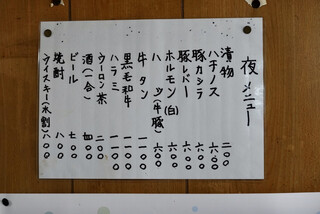 夜メニュー
漬物 二〇〇
ハチノス 六〇〇
豚カシラ 六〇〇
豚レバー 六〇〇
ホルモン(白) 六〇〇
ハツ(牛豚) 六〇〇
牛タン 一一〇〇
黒毛和牛
ハラミ 一一〇〇
ウーロン茶 二〇〇
酒(一合) 四〇〇
ビール 七〇〇
焼酎 八〇〇
ウイスキー(水割) 八〇〇